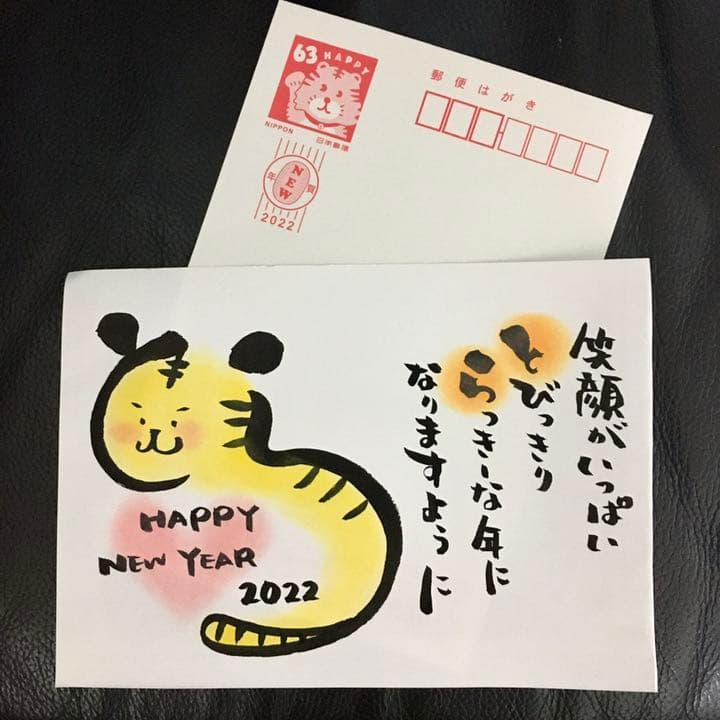 63 HAPPY
NIPPON 日本郵便
年 NEW 賀
2022
郵便はがき
笑顔がいっぱい
とびっきり
らっきーな年に
なりますように
HAPPY
NEW YEAR
2022